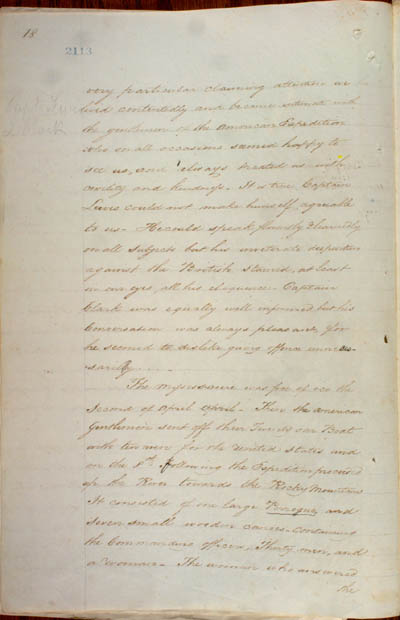 18
2113
very particular claiming attention we
lived contentedly and became intimate with
the gentlemen of the American Expedition
who on all occasions seemed happy to
see us, and always treated us with
civility and kindness. It is true Captain
Lewis could not make himself agreeable
to us. He could speak fluently & learnedly
on all subjects but his inveterate disposition
against the British stained, at least
in our eyes, all his eloquence. Captain
Clark was equally well informed but his
Conversation was always pleasant, for
he seemed to dislike giving offence unneces-
sarily
The Missouri was free of ice the
Second of April. Then the American
Gentlemen sent off their Twelve oar Boat
with ten men for the United States and
on the 8th following the Expedition proceeded
up the River towards the Rocky Mountains
It consisted of one large Perogue, and
Seven small wooden canoes. Containing
the Commanding officers, Thirty men, and
a woman. The woman who answered
the